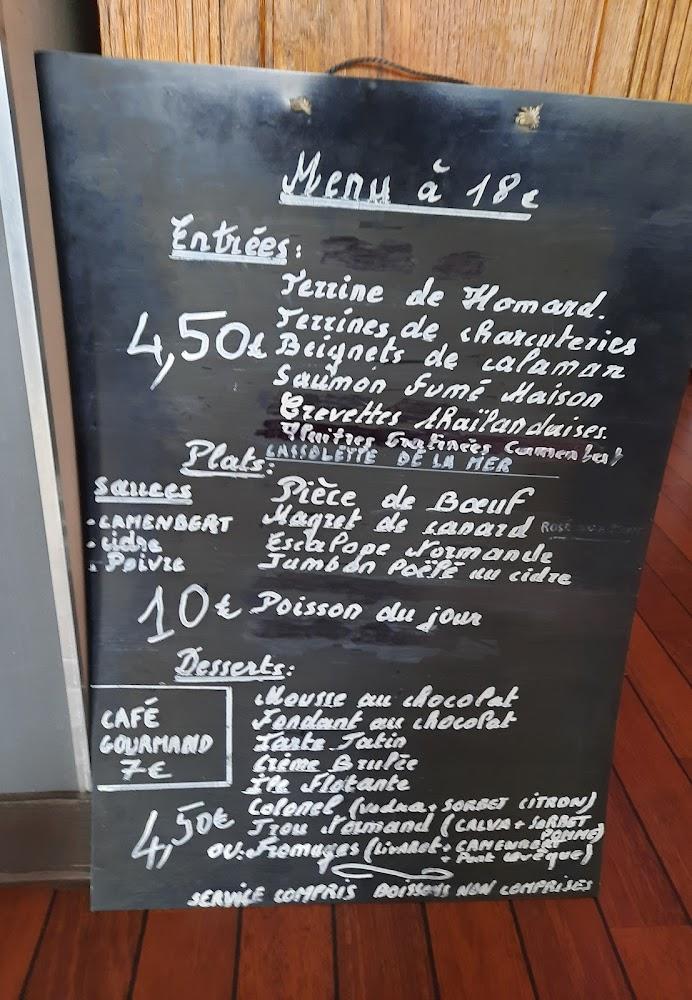 Menu à 18€
Entrées:
Terrine de Homard.
Terrines de charcuteries
4,50€ Beignets de calamar
Saumon fumé Maison
Crevettes thaïlandaises.
Huitres Gratinées Camembert
CASSOLETTE DE LA MER
Plats:
Sauces
- CAMENBERT
- cidre
- Poivre
Pièce de Bœuf
Magret de canard
Escalope Normande
Jambon Poêlé au cidre
10€ Poisson du jour
Desserts:
CAFÉ
GOURMAND
7€
Mousse au chocolat
Fondant au chocolat
Tarte Tatin
Crème Brulée
Ile Flotante
4,50€
Colonel (vodka + SORBET CITRON)
Trou Normand (CALVA + SORBET
POMME)
ou. Fromages (LIVAROT + CAMEMBERT
+ Pont Evêque)
SERVICE COMPRIS BOISSONS NON COMPRISES